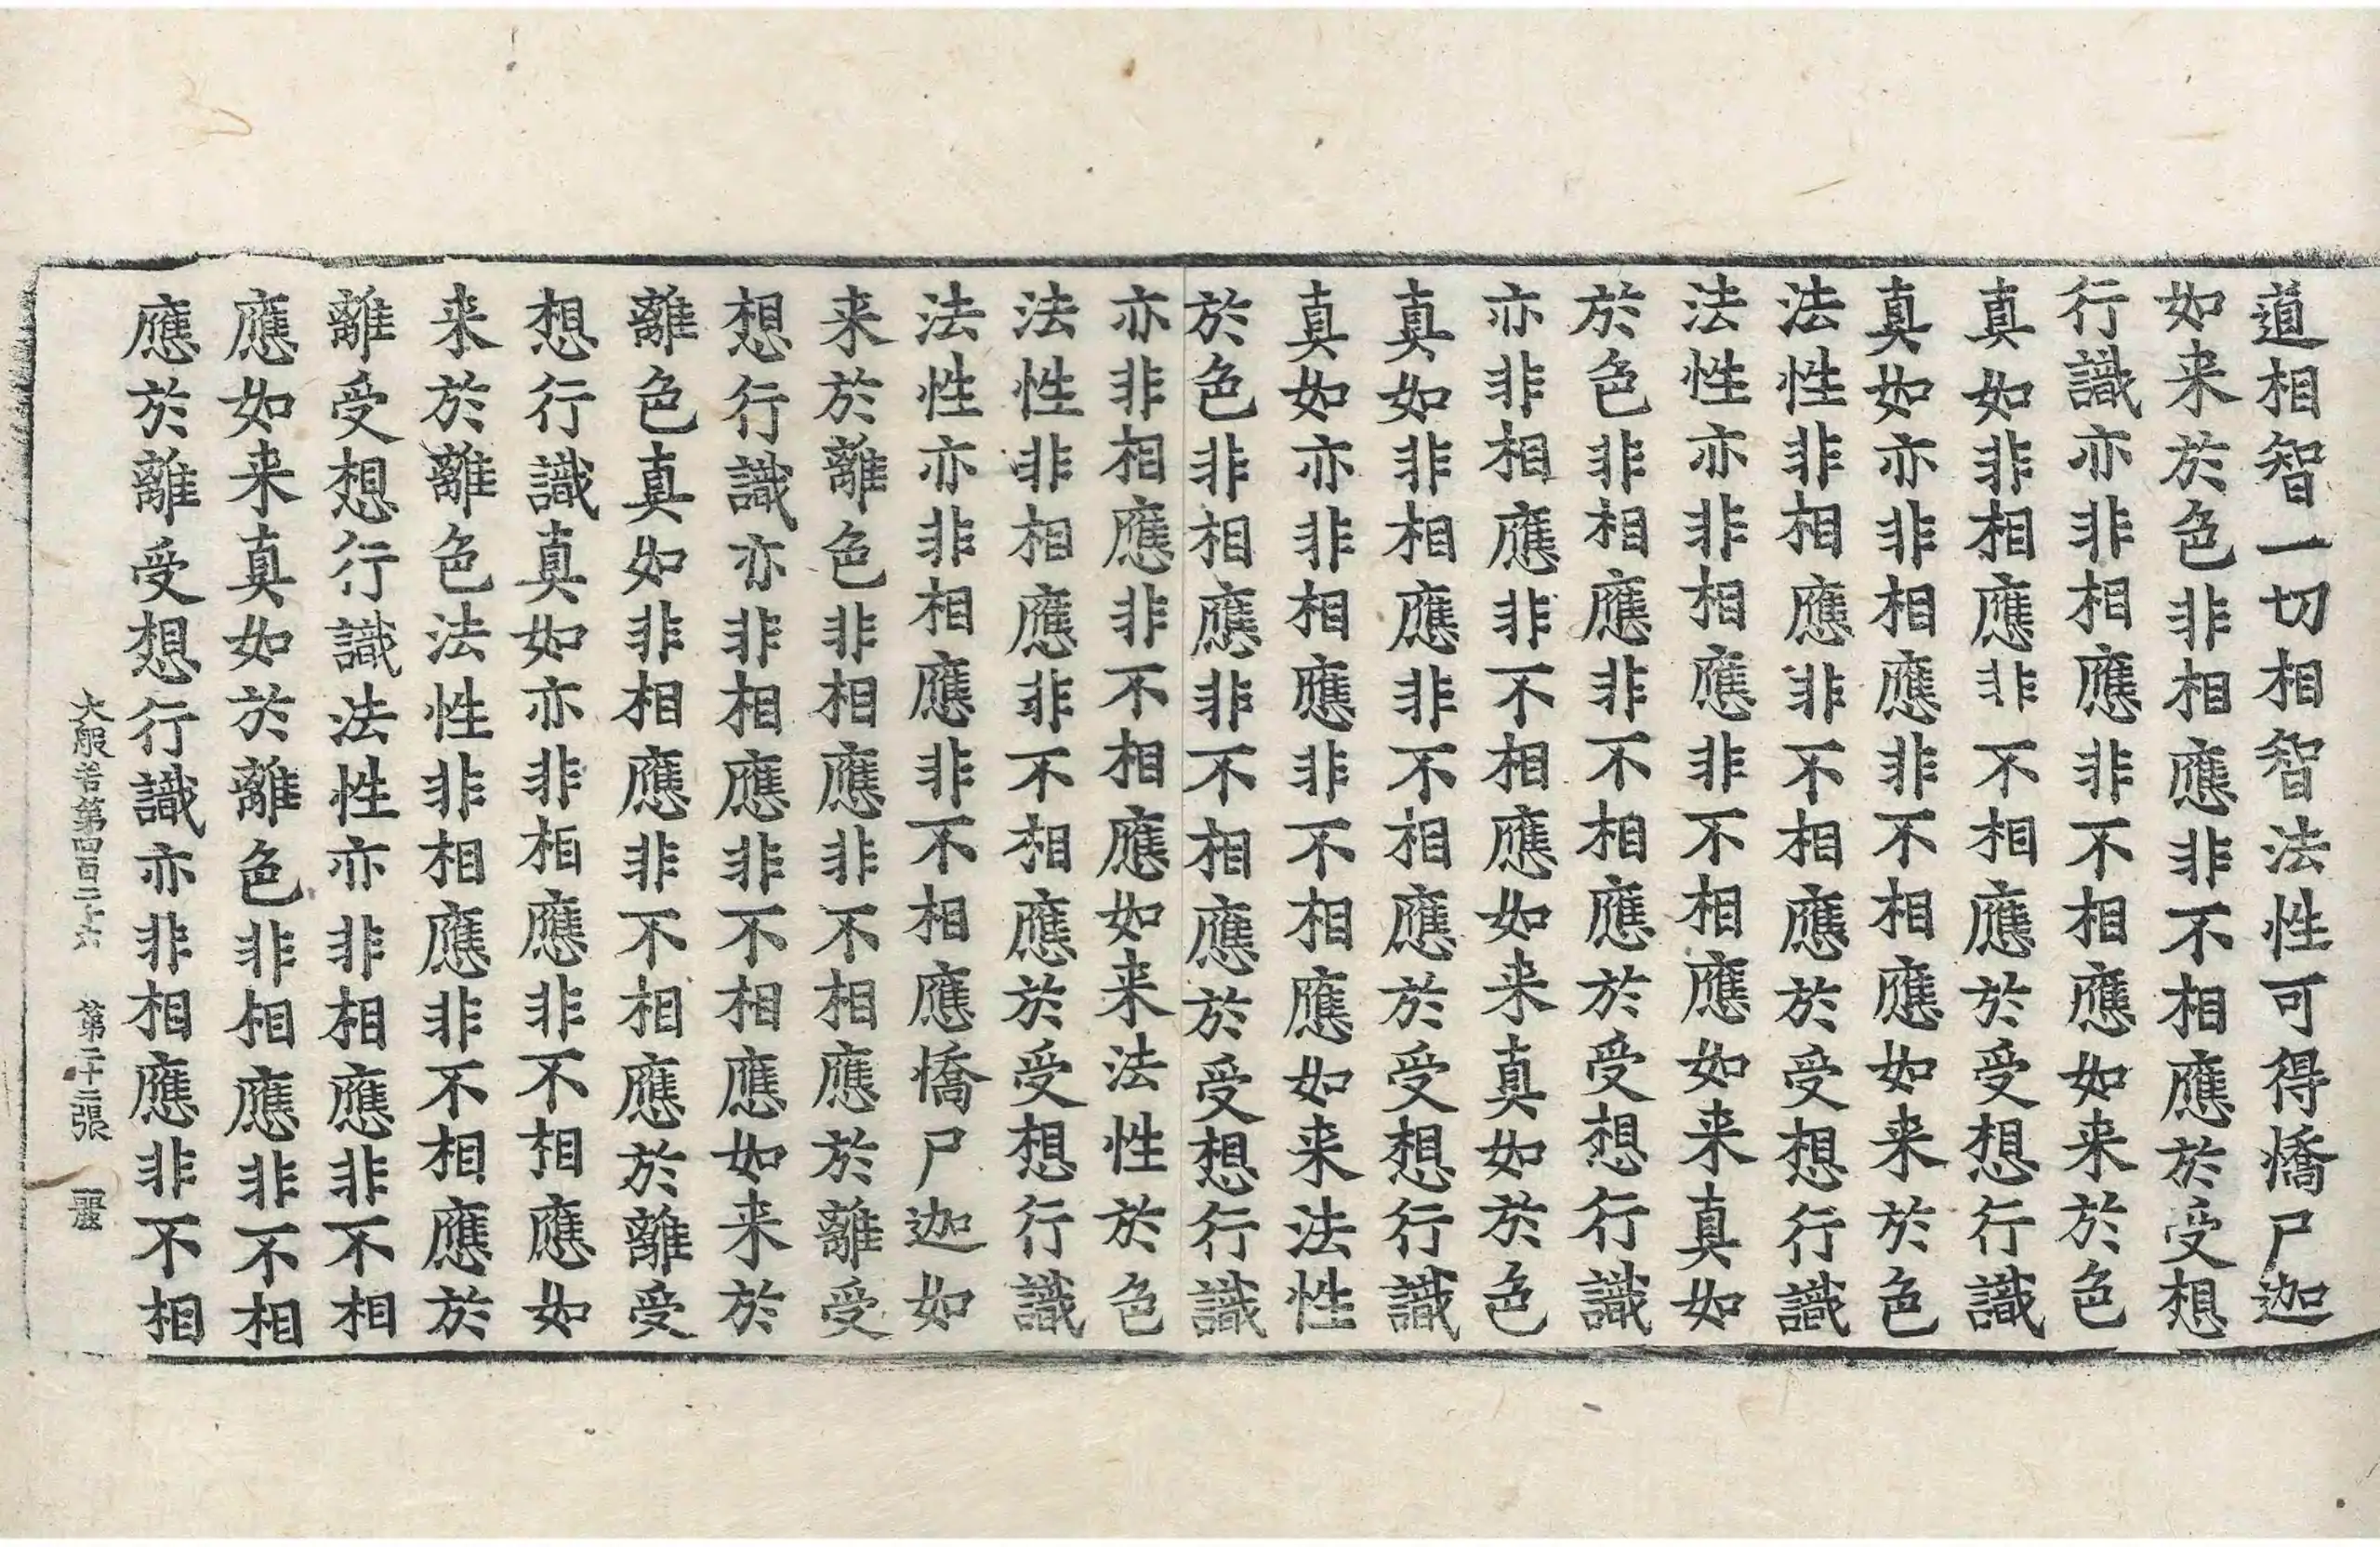 道相智一切相智法性可得憍尸迦
如来於色非相應非不相應於受想
行識亦非相應非不相應如来於色
真如非相應非不相應於受想行識
真如亦非相應非不相應如来於色
法性非相應非不相應於受想行識
法性亦非相應非不相應如来真如
於色非相應非不相應於受想行識
亦非相應非不相應如来真如於色
真如非相應非不相應於受想行識
真如亦非相應非不相應如来法性
於色非相應非不相應於受想行識
亦非相應非不相應如来法性於色
法性非相應非不相應於受想行識
法性亦非相應非不相應憍尸迦如
来於離色非相應非不相應於離受
想行識亦非相應非不相應如来於
離色真如非相應非不相應於離受
想行識真如亦非相應非不相應如
来於離色法性非相應非不相應於
離受想行識法性亦非相應非不相
應如来真如於離色非相應非不相
應於離受想行識亦非相應非不相
大般若第四百二十六 第二十二張 麗